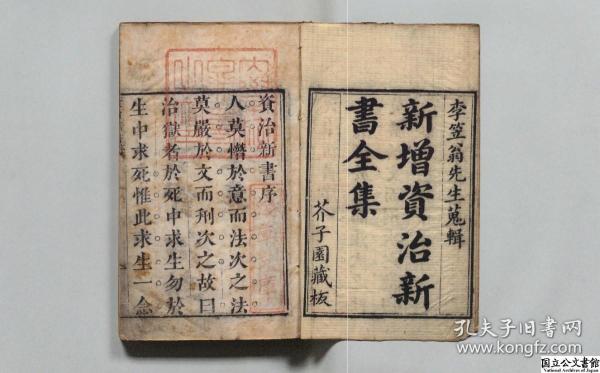 李笠翁先生蒐輯
新增資治新
書全集
芥子園藏板
資治新書序
人莫憯於意而法次之法
莫嚴於文而刑次之故曰
治獄者於死中求生勿於
生中求死惟此求生一念
孔夫子旧书网
www.kongfz.com
国立公文書館
National Archives of Japan